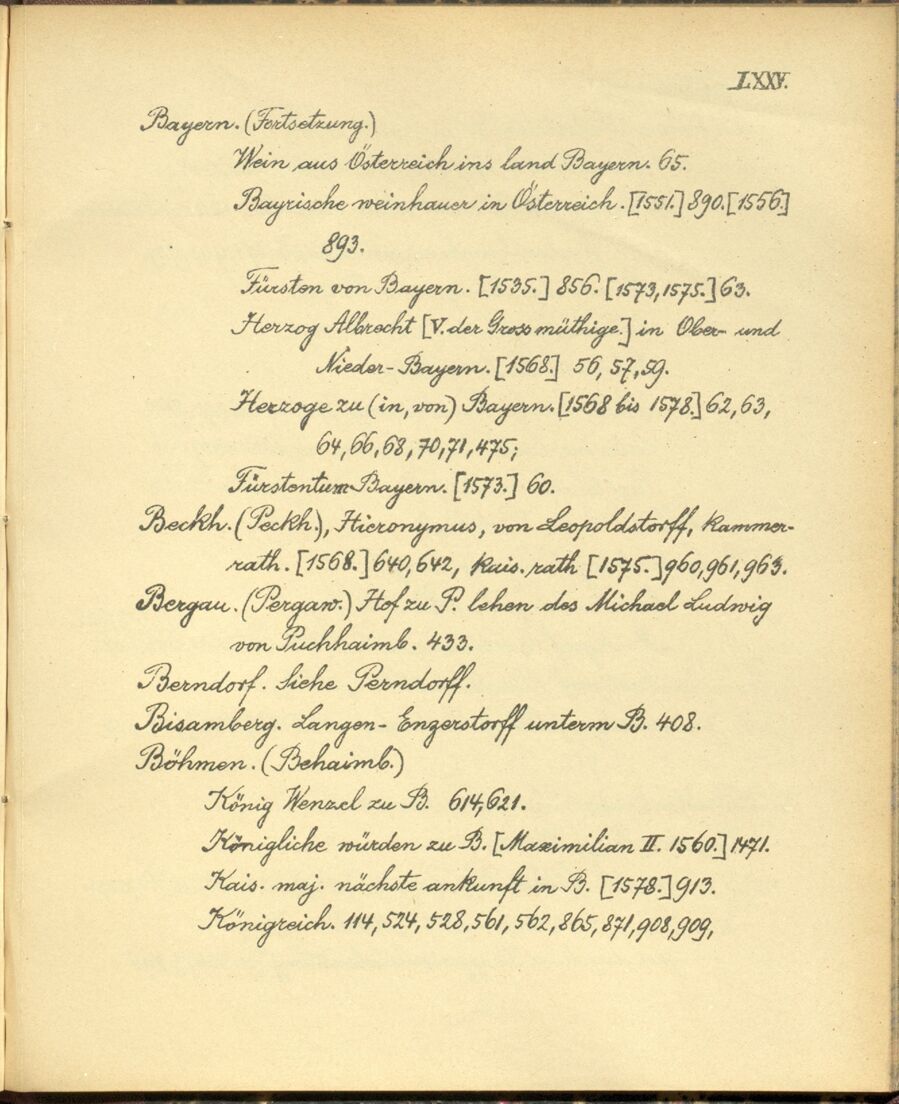 LXXV.
Bayern. (Fortsetzung.)
Wein aus Österreich ins land Bayern. 65.
Bayrische weinhauer in Österreich. [1551.] 890. [1556.]
893.
Fürsten von Bayern. [1535.] 856. [1573, 1575.] 63.
Herzog Albrecht [V. der Grossmüthige.] in Ober- und
Nieder-Bayern. [1568.] 56, 57, 59.
Herzoge zu (in, von) Bayern. [1568 bis 1578.] 62, 63,
64, 66, 68, 70, 71, 475;
Fürstentum Bayern. [1573.] 60.
Beckh. (Peckh.), Hieronymus, von Leopoldstorff, kammer-
rath. [1568.] 640, 642, kais. rath [1575.] 960, 961, 963.
Bergau. (Pergaw.) Hof zu P. lehen des Michael Ludwig
von Puchhaimb. 433.
Berndorf. Siehe Perndorff.
Bisamberg. Langen-Enzerstorff unterm B. 408.
Böhmen. (Behaimb.)
König Wenzel zu B. 614, 621.
Königliche würden zu B. [Maximilian II. 1560.] 1471.
Kais. maj. nächste ankunft in B. [1578.] 913.
Königreich. 114, 524, 528, 561, 562, 865, 871, 908, 909,